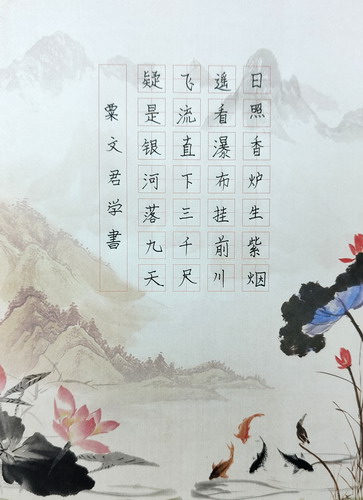 日照香炉生紫烟
遥看瀑布挂前川
飞流直下三千尺
疑是银河落九天
粟文君学書